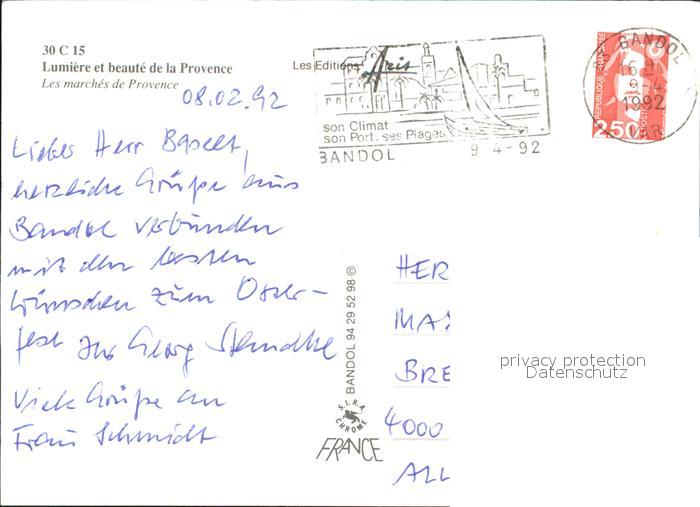 30 C 15
Lumière et beauté de la Provence
Les marchés de Provence
Les Editions Aris
08.02.92
Lieber Herr Basett,
herzliche Grüße aus
Bandol verbunden
mit den besten
Wünschen zum Oster-
fest Ihr Georg
Viele Grüße an
Frau Schmidt
son Climat
son Port, ses Plages
BANDOL
9-4-92
83 BANDOL
16H
9-4
1992
VAR
REPUBLIQUE FRANÇAISE
2,50
POSTES
BANDOL 94 29 52 98 ©
S.I.R.A.
CHROME
FRANCE
HER
MA
BRE
4000
ALL
privacy protection
Datenschutz